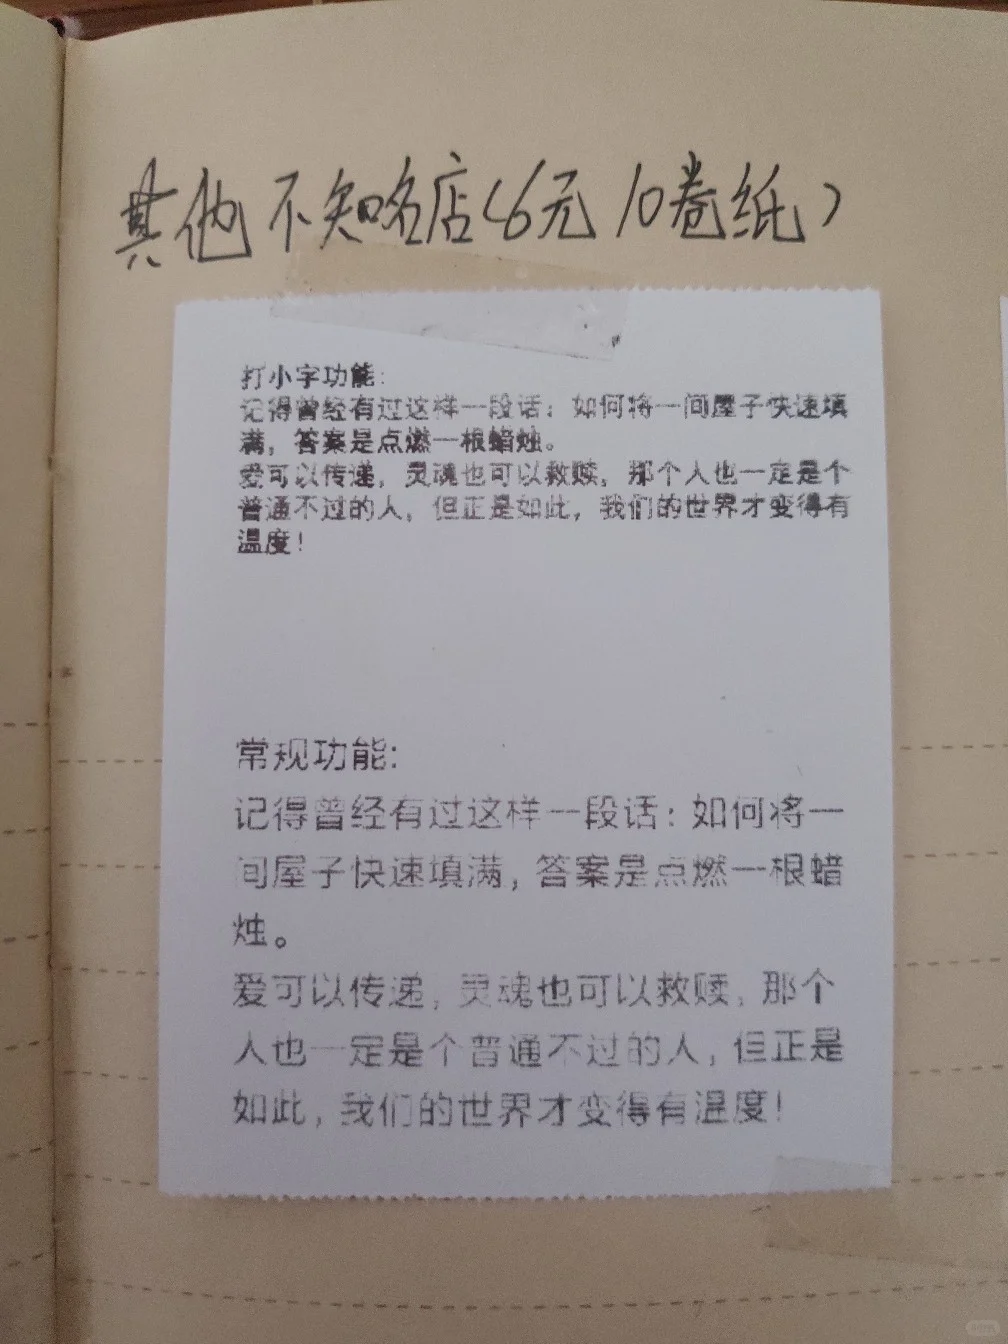 其他不知名店(6元10卷纸)
打小字功能:
记得曾经有过这样一段话：如何将一间屋子快速填
满，答案是点燃一根蜡烛。
爱可以传递，灵魂也可以救赎，那个人也一定是个
普通不过的人，但正是如此，我们的世界才变得有
温度！
常规功能:
记得曾经有过这样一段话：如何将一
间屋子快速填满，答案是点燃一根蜡
烛。
爱可以传递，灵魂也可以救赎，那个
人也一定是个普通不过的人，但正是
如此，我们的世界才变得有温度！